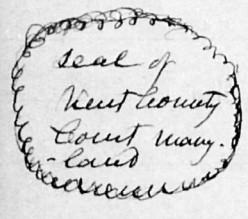 seal of
Kent County
Court Mary-
-land